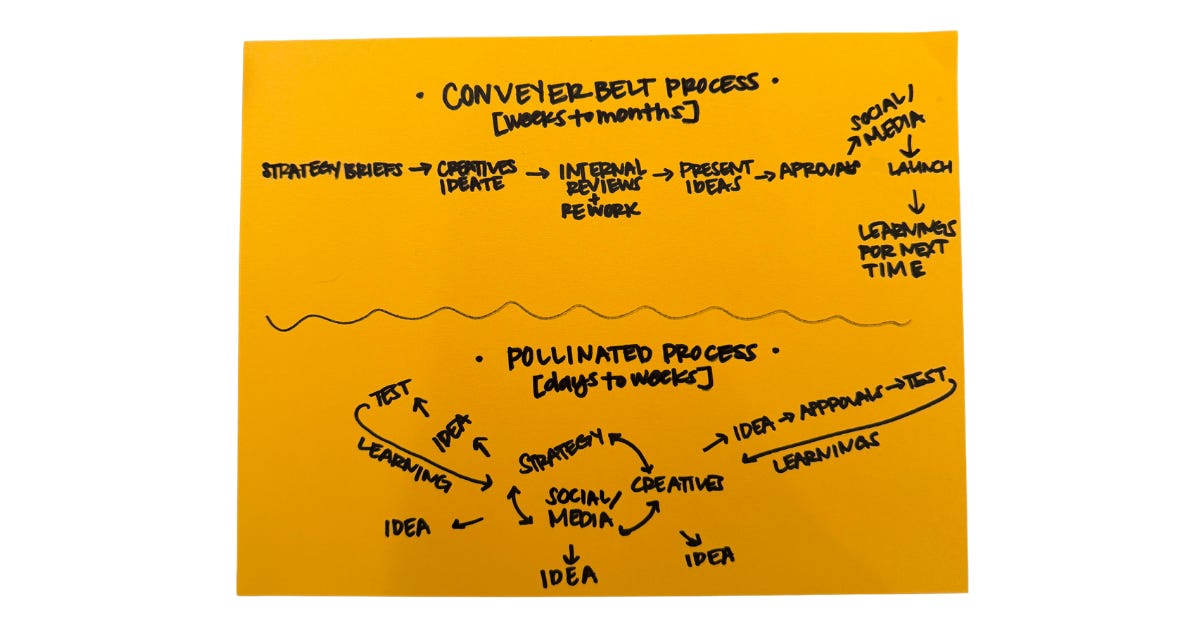 • CONVEYER BELT PROCESS •
[weeks to months]
STRATEGY BRIEFS → CREATIVES IDEATE → INTERNAL REVIEWS + REWORK → PRESENT IDEAS → APROVALS
SOCIAL/
MEDIA
LAUNCH
LEARNINGS
FOR NEXT
TIME
• POLLINATED PROCESS •
[days to weeks]
TEST
IDEA
LEARNING
STRATEGY
CREATIVES
SOCIAL/
MEDIA
IDEA → APPPOVALS → TEST
LEARNINGS
IDEA
IDEA
IDEA